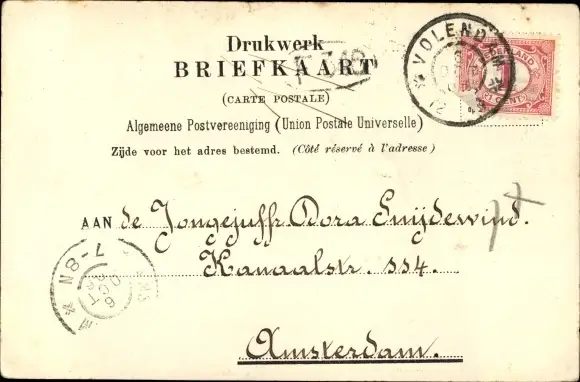 Drukwerk
BRIEFKAART
(CARTE POSTALE)
Algemeene Postvereeniging (Union Postale Universelle)
Zijde voor het adres bestemd. (Côté réservé à l'adresse)
VOLENDAM
AAN de Jongejuffr. Dora Snijdewind.
Kanaalstr. 554.
Amsterdam.
7-8N
6
OCT